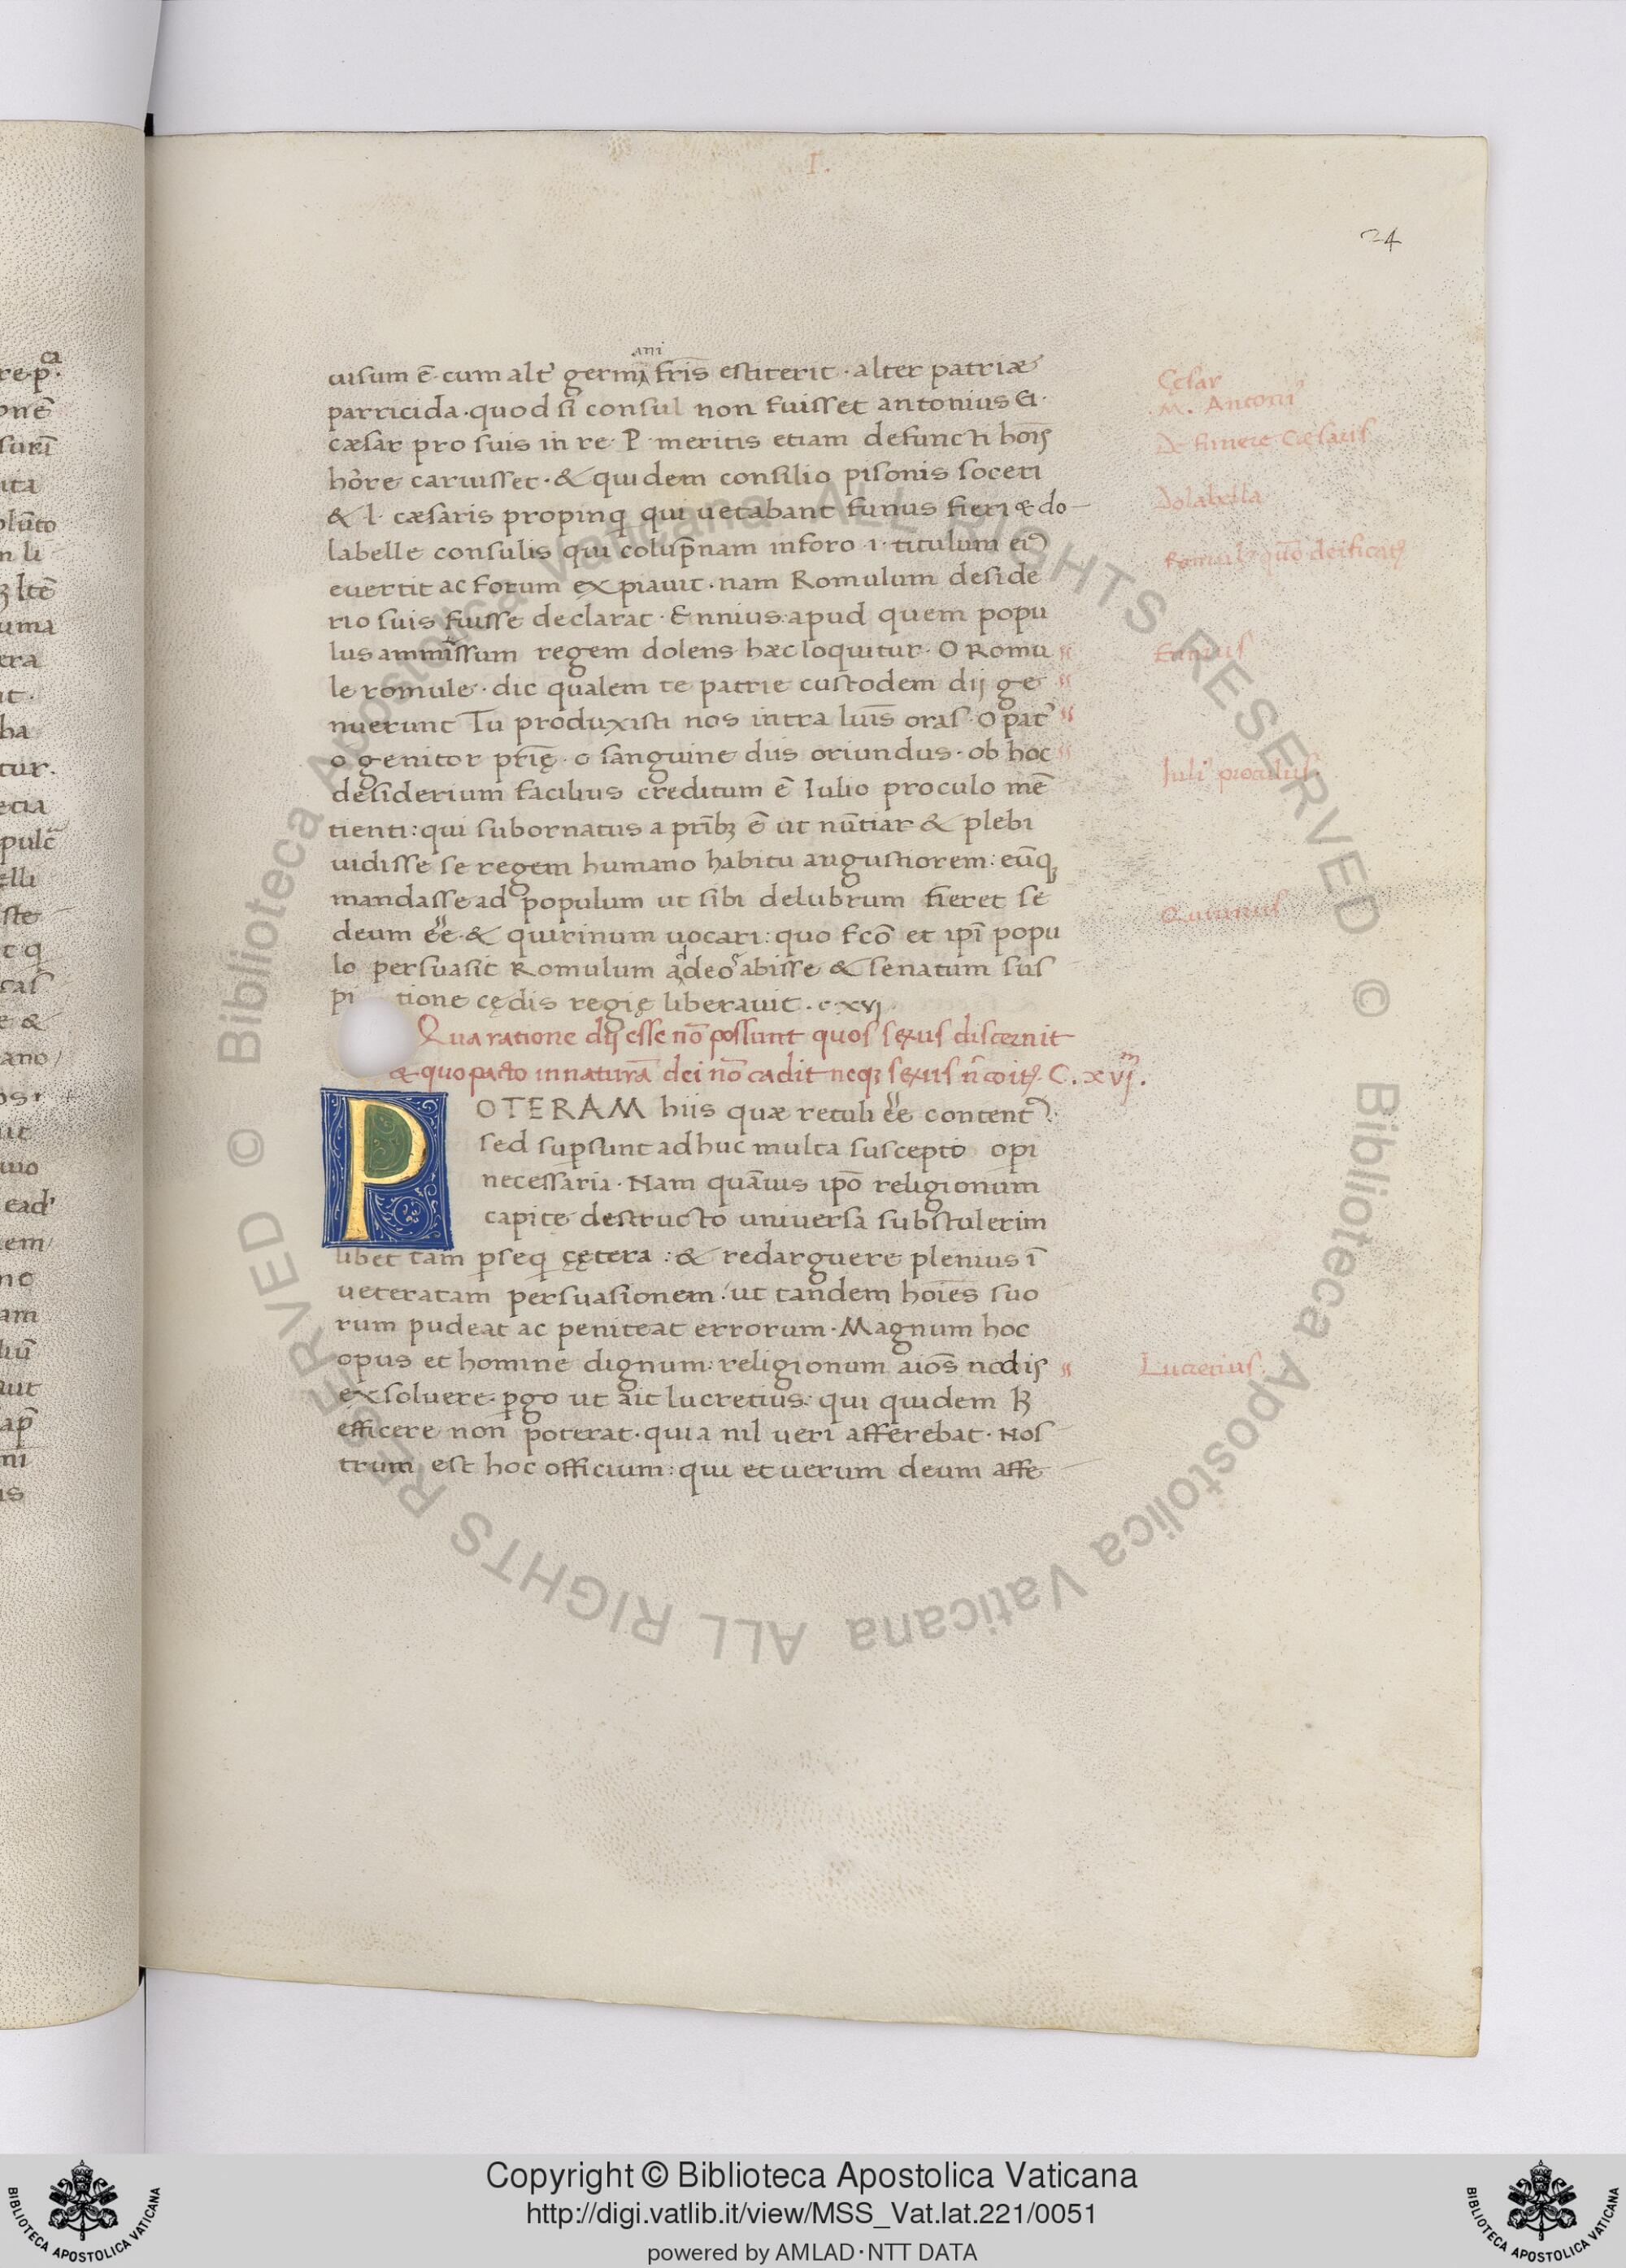 I.
24
uisum ē cum alt' germ̄ani fr̄is estiterit · alter patriæ
parricida · quod si consul non fuisset antonius & ·
cæsar pro suis in re · P · meritis etiam defuncti hōis
hōre caruisset · & quidem consilio pisonis soceri
& l · cæsaris propinq̨ qui uetabant funus fieri & do
labelle consulis qui colūpnam in foro · i · titulum ei⁹
euertit ac forum expiauit · nam Romulum deside
rio suis fuisse declarat · Ennius · apud quem popu
lus ammīssum regem dolens hæc loquitur · O Romu
le romule · dic qualem te patrie custodem dij ge
nuerunt Tu produxisti nos intra luīs oras · O pat'
o genitor ptr̄ię · o sanguine diis oriundus · ob hoc
desiderium facilius creditum ē Iulio proculo mē
tienti : qui subornatus a ptr̄ibꝫ ē ut nūtiar & plebi
uidisse se regem humano habitu angustiorem : eūqꝫ
mandasse ad populum ut sibi delubrum fieret se
deum ēē · & quirinum uocari : quo fcō et ip̄i popu
lo persuasit Romulum ad deos abisse & senatum sus
pi tione cędis regię liberauit . c · xvj
Qua ratione dij esse nō possunt quos sexus discernit
& quo pacto in naturā dei nō cadit neqꝫ sexus n̄ coit⁹. C. xvjᵐ.
POTERAM hiis quæ retuli ēē content⁹ ·
sed suꝑsunt adhuc multa suscepto opi
necessaria · Nam quāuis ip̄o religionum
capite destructo universa substulerim
libet tam̄ ꝑseq̨ çętera : & redarguere plenius ī
ueteratam persuasionem : ut tandem hoīes suo
rum pudeat ac peniteat errorum · Magnum hoc
opus et homine dignum : religionum aīos nodis
exsoluere · ꝑgo ut ait lucretius : qui quidem h̄
efficere non poterat · quia nil ueri afferebat · Nos
trum est hoc officium : qui et uerum deum affe
Cęsar
M. Antoni⁹
De funere Cæsaris
Dolabella
Romul⁹ quō deificat⁹
Ennius
Iuli⁹ proculus
Quirinus
Lucretius
re · p · ca
onē
surī
ita
m li
uma
era
ba
tur.
etia
elli
ste
t q̨
cas
e &
ano
ut
uio
ead'
em
am
aut
mi
is
© Biblioteca Apostolica Vaticana ALL RIGHTS RESERVED © Biblioteca Apostolica Vaticana ALL RIGHTS RESERVED
Copyright © Biblioteca Apostolica Vaticana
http://digi.vatlib.it/view/MSS_Vat.lat.221/0051
powered by AMLAD·NTT DATA
BIBLIOTECA APOSTOLICA VATICANA
BIBLIOTECA APOSTOLICA VATICANA